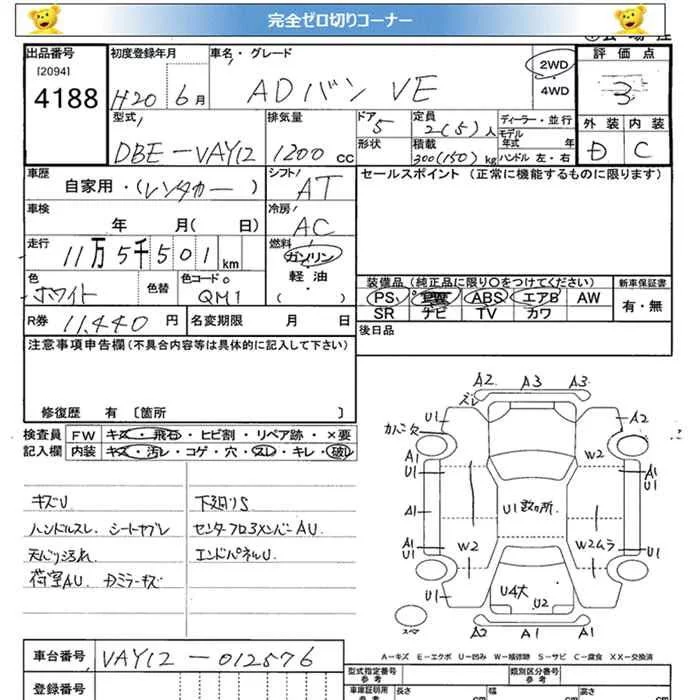 完全ゼロ切りコーナー
出品番号 初度登録年月 車名・グレード 評価点
[2094]
4188 H20 6月 ADバン VE 2WD
4WD 3
型式 排気量 ドア 定員 ディーラー・並行 外装 内装
DBE-VAY12 1200cc 5 2(5)人 モデル年式 年
形状 積載 300(150)kg ハンドル 左・右 D C
車歴 シフト セールスポイント(正常に機能するものに限ります)
自家用・(レンタカー) AT
車検 冷房
年 月(日) AC
走行 燃料
11万5千501km ガソリン
軽・油
(・)
色 色替 色コードNo 装備品(純正品に限り○をつけてください) 新車保証書
ホワイト QM1 PS PW ABS エアB AW 有・無
SR ナビ TV カワ
R券 11,440円 名変期限 月 日 後日品
注意事項申告欄(不具合内容等は具体的に記入して下さい)
修復歴 有 〔箇所 〕
検査員 FW キズ・飛石・ヒビ割・リペア跡・×要
記入欄 内装 キズ・汚レ・コゲ・穴・スレ・キレ・破レ
キズU 下廻りS
ハンドルスレ シートヤブレ センターフロアメンバーAU.
天バリ汚れ エンドパネルU.
荷室AU.
A2 A3 A3
ズレ
U1 A2
A1 U1 W2 A1 U1
A1 U1数ヶ所 A1
A1 U1 W2 W2ムラ A1 U1
U1 U4大 U2 U1
A2 A1 A2
スペア
A-キズ E-エクボ U-凹み W-補修跡 S-サビ C-腐食 XX-交換済
車台番号 VAY12-012576
型式指定番号 参考 類別区分番号 参考
登録番号 車庫証明用 参考 長さ cm 幅 cm 高さ cm